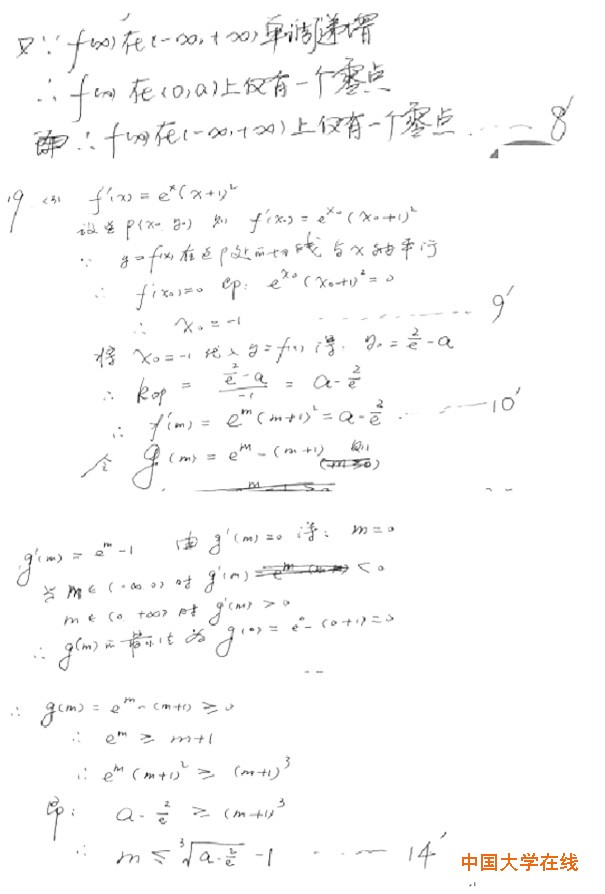 又∵ f(x)在(-∞,+∞)单调递增
∴ f(x) 在(0,a)上仅有一个零点
∴ f(x)在(-∞,+∞)上仅有一个零点 ...... 8'
19 (3) f'(x) = eˣ(x+1)²
设点P(x₀ y₀) 则 f'(x₀) = e^x₀ (x₀+1)²
∵ y=f(x)在点P处的切线与X轴平行
∴ f'(x₀)=0 即: e^x₀ (x₀+1)² = 0
∴ x₀ = -1 ...... 9'
将 x₀ = -1 代入 y = f(x) 得: y₀ = 2/e - a
∴ kop = (2/e - a)/-1 = a - 2/e
∴ f'(m) = e^m (m+1)² = a - 2/e ...... 10'
令 g(m) = e^m - (m+1) 则
g'(m) = e^m - 1 由 g'(m) = 0 得: m = 0
当 m∈(-∞ 0) 时 g'(m) < 0
m∈(0 +∞) 时 g'(m) > 0
∴ g(m)的最小值为 g(0) = e⁰ - (0+1) = 0
∴ g(m) = e^m - (m+1) ≥ 0
∴ e^m ≥ m+1
∴ e^m (m+1)² ≥ (m+1)³
即: a - 2/e ≥ (m+1)³
∴ m ≤ ∛(a - 2/e) - 1 ...... 14'
中国大学在线